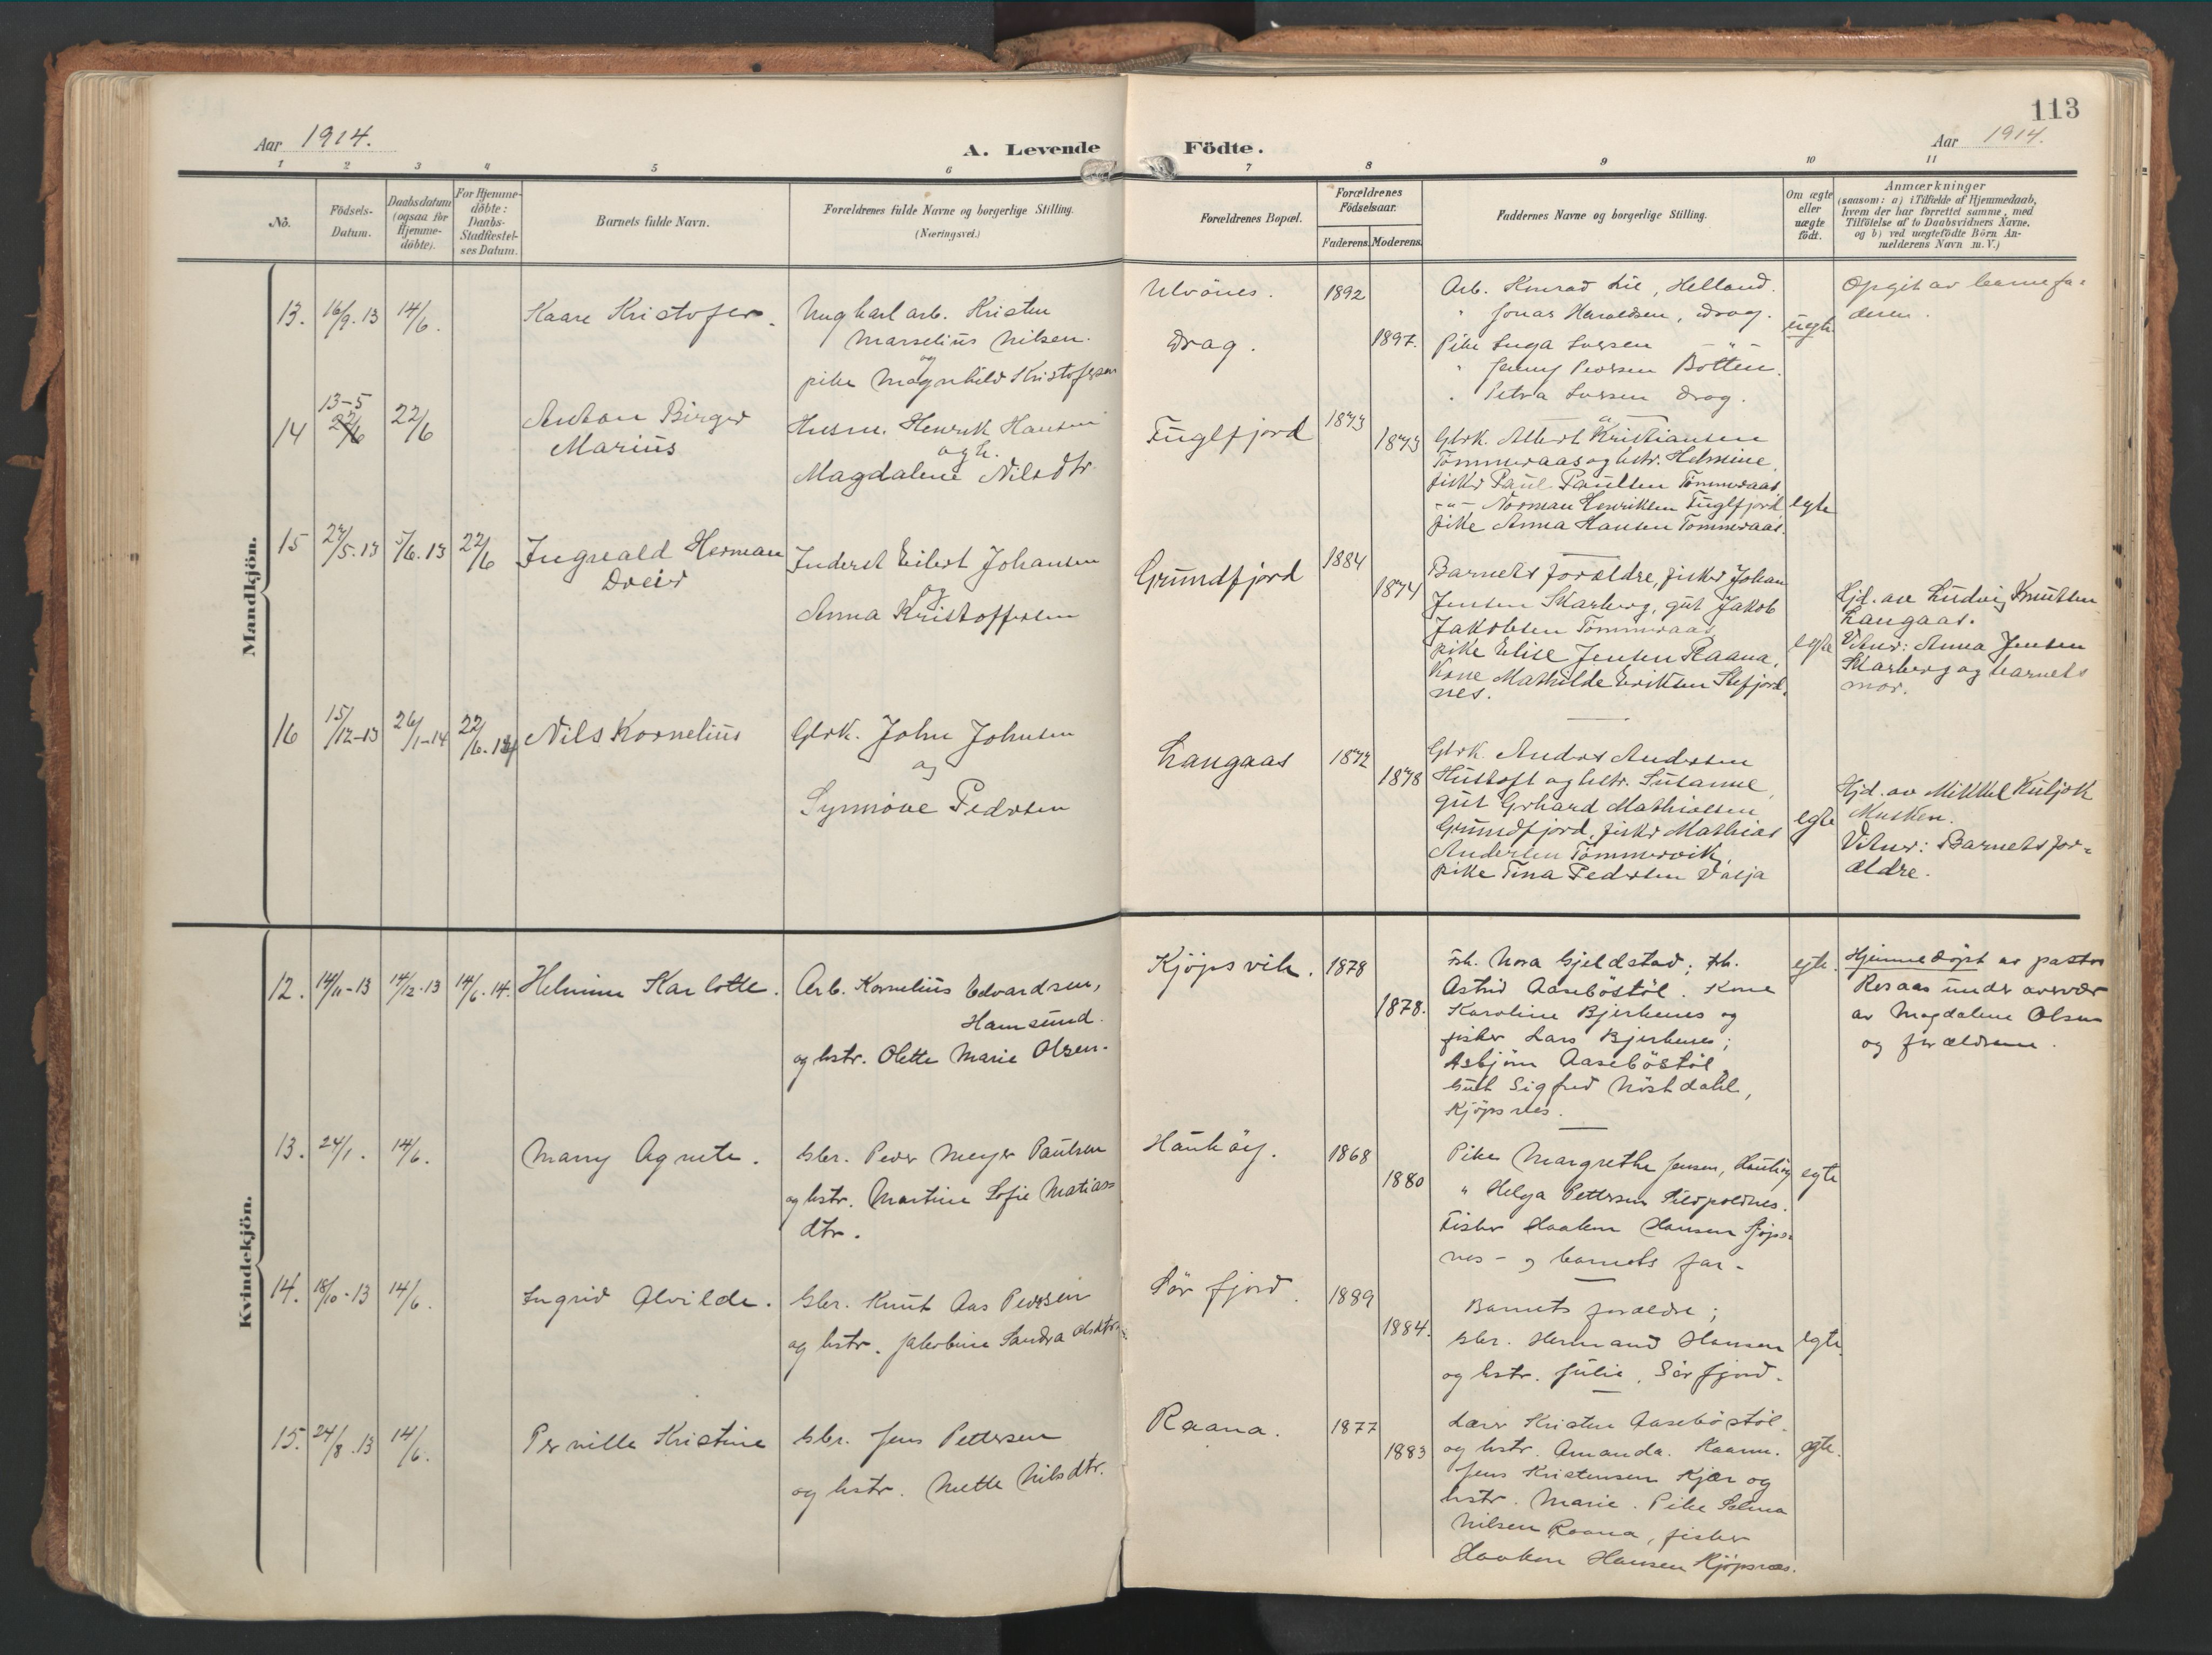 113
Aar 1914.
A. Levende Födte.
Aar 1914.
1 2 3 4 5 6 7 8 9 10 11
No.
Födsels-Datum.
Daabsdatum (ogsaa for Hjemme-döbte).
For Hjemme-döbte: Daabs-Stadfæstel-ses Datum.
Barnets fulde Navn.
Forældrenes fulde Navne og borgerlige Stilling.
(Næringsvei.)
Forældrenes Bopæl.
Forældrenes Födselsaar.
Faderens. Moderens.
Faddernes Navne og borgerlige Stilling.
Om ægte eller uægte födt.
Anmærkninger
(saasom: a) i Tilfælde af Hjemmedaab,
hvem der har forrettet samme, med
Tilföielse af to Daabsvidners Navne.
og b) ved uægtefödte Börn An-
melderens Navn m. V.)
Mandkjön.
13. 16/9.13 14/6. Kaare Kristofer.
Ungkarl arb. Kristen
Marselius Nilsen.
og
pike Magnhild Kristofersen
Ulvönes.
Drag.
1892
1897.
Arb. Konrad Lie, Helland.
" Jonas Haraldsen, Drag.
Pike Inga Larsen — " —
" Jenny Pedersen Botten.
" Petra Larsen Drag.
uegte
Opgit av barnefa-
deren.
14 13-5 22/6 22/6
Anton Birger
Marius
Husm. Henrik Hansen
og h.
Magdalene Nilsdtr.
Fuglfjord
1873
1873
Gbrk. Albert Kristiansen
Tömmeraas og hstr. Helmine,
fisker Paul Paulsen Tömmeraas,
-"- Norman Henriksen Fuglfjord
pike Anna Hansen Tömmeraas.
egte
15 27/5.13 5/6.13 22/6
Ingvald Herman
Dreier
Inderst Eilert Johansen
og
Anna Kristoffersen
Grundfjord
1884
1874
Barnets forældre, fisker Johan
Jensen Skarberg, gut Jakob
Jakobsen Tömmeraas
pike Elise Jensen Raana,
Kone Mathilde Eriksen Stefjord-
nes.
egte
Hjd. av Ludvig Knutsen
Langaas.
Vitner: Anna Jensen
Skarberg og barnets
mor.
16 15/12-13 26/1-14 22/6.14 Nils Kornelius
Gbrk. John Johnsen
og
Synnöve Pedersen
Langaas
1872
1878
Gbrk. Anders Andersen
Hustoft og hstr. Susanne,
gut Gerhard Mathisen
Grundfjord, fisker Mathias
Andersen Tömmervik,
pike Tina Pedersen Vasja
egte
Hjd. av Mikkel Kuljok
Musken.
Vitner: Barnets for-
ældre.
Kvindekjön.
12. 14/11-13 14/12-13 14/6.14. Helmine Karlotte.
Arb. Kornelius Edvardsen,
Hamsund.
og hstr. Olette Marie Olsen.
Kjöpsvik.
1878
1878.
Frk. Nora Gjeldstad; frk.
Astrid Aaseböstöl. Kone
Karoline Bjerkenes og
fisker Lars Bjerkenes;
Asbjörn Aaseböstöl,
Gut Sigfred Nöstdahl,
Kjöpsnes.
egte.
Hjemmedöpt av pastor
Resaas under nærvær
av Magdalene Olsen
og forældrene.
13. 24/1. 14/6. Marry Agnete.
Gbr. Peder Meyer Paulsen
og hstr. Martine Sofie Matias-
dtr.
Haukøy.
1868
1880
Pike Margrethe Jensen, Haukøy
" Helga Pettersen
Fisker Haakon Hansen Kjöps-
nes - og barnets far.
egte
14. 18/10-13 14/6. Ingrid Alvilde.
Gbr. Knut Aas Pedersen
og hstr. Jakobine Sandra Olsdtr.
Sörfjord.
1889
1884.
Barnets forældre;
Gbr. Hermand Hansen
og hstr. Julie, Sörfjord.
egte.
15. 24/8.13 14/6. Pernille Kristine
Gbr. Jens Pettersen
og hstr. Mette Nilsdtr.
Raana.
1877
1883
Lærer Kristen Aaseböstöl
og hstr. Amanda. Kaarm.
Jens Kristensen Kjær og
hstr. Marie. Pike Selma
Nilsen Raana, fisker
Haakon Hansen Kjöpsnes.
egte.